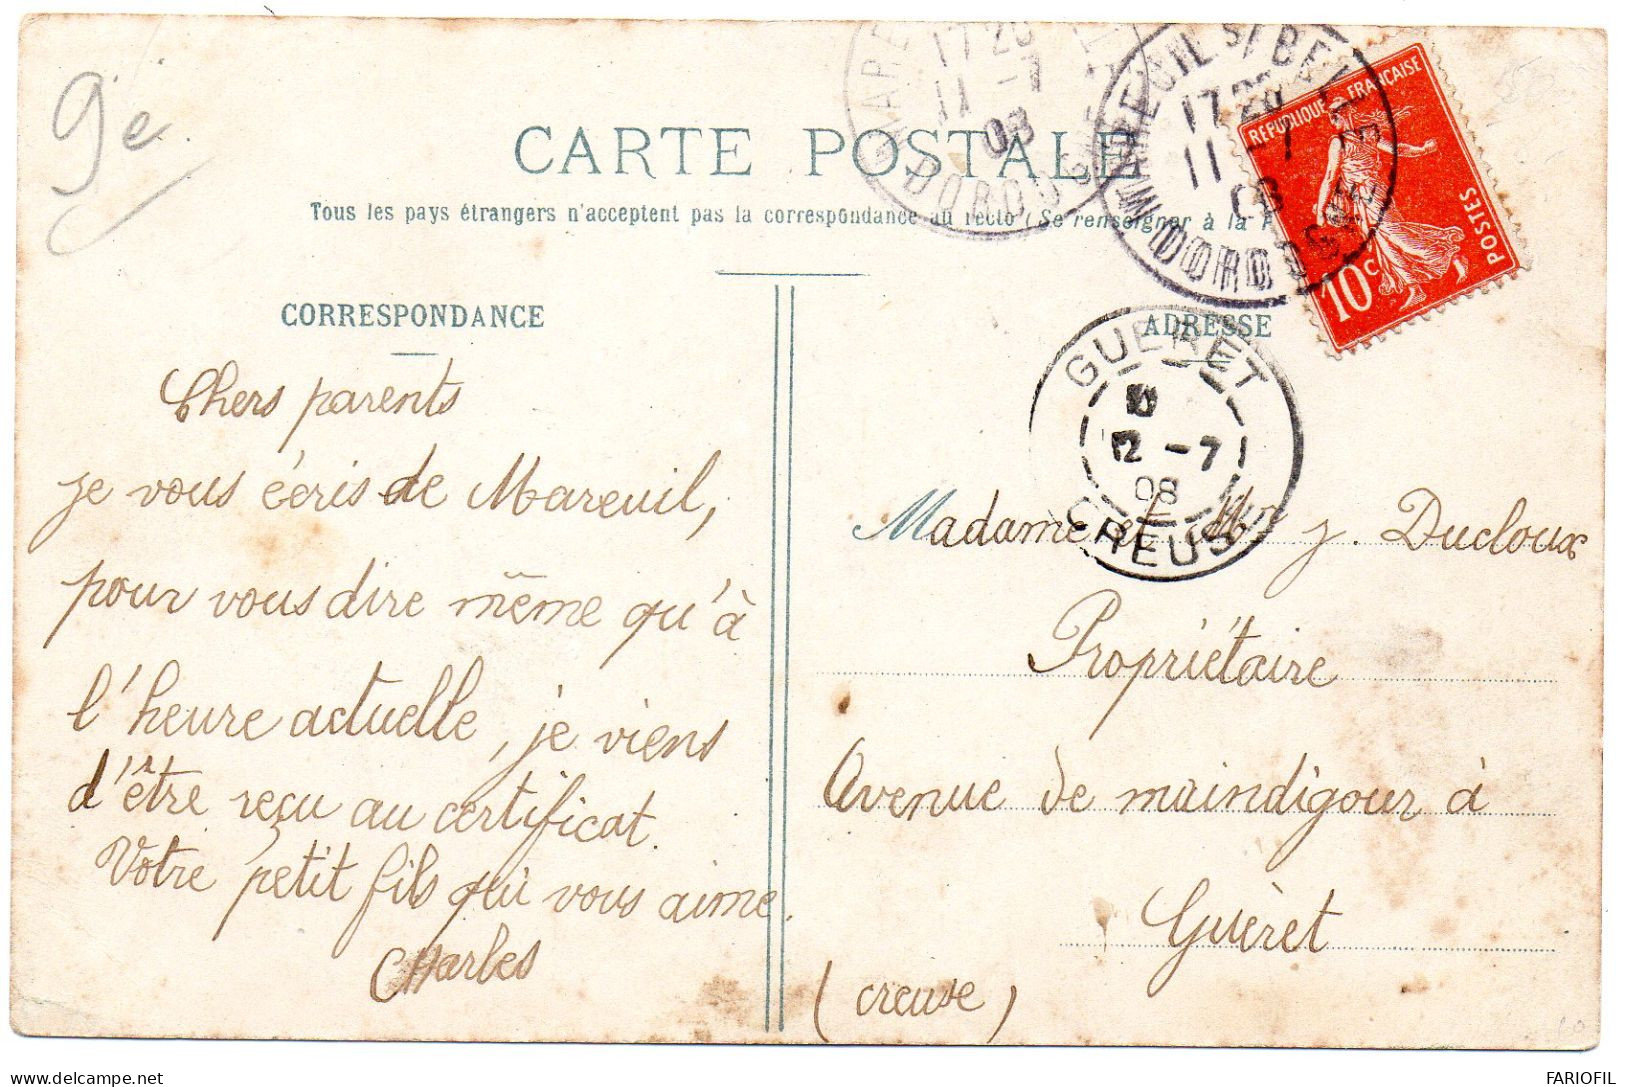 9e
CARTE POSTALE
Tous les pays étrangers n'acceptent pas la correspondance au recto (Se renseigner à la P
MAREUIL S/ BELLE
17 20
11 -7
08
DORDOGNE
MAREUIL S/ BELLE
17 20
11 -7
08
DORDOGNE
REPUBLIQUE FRANÇAISE
POSTES
10c
CORRESPONDANCE
Chers parents
je vous écris de Mareuil,
pour vous dire même qu'à
l'heure actuelle, je viens
d'être reçu au certificat.
Votre petit fils qui vous aime.
Charles
ADRESSE
GUERET
12 -7
08
CREUSE
Madame et Mr J. Ducloux
Propriétaire
Avenue de maindigour à
Guèret
(creuse)
www.delcampe.net
FARIOFIL